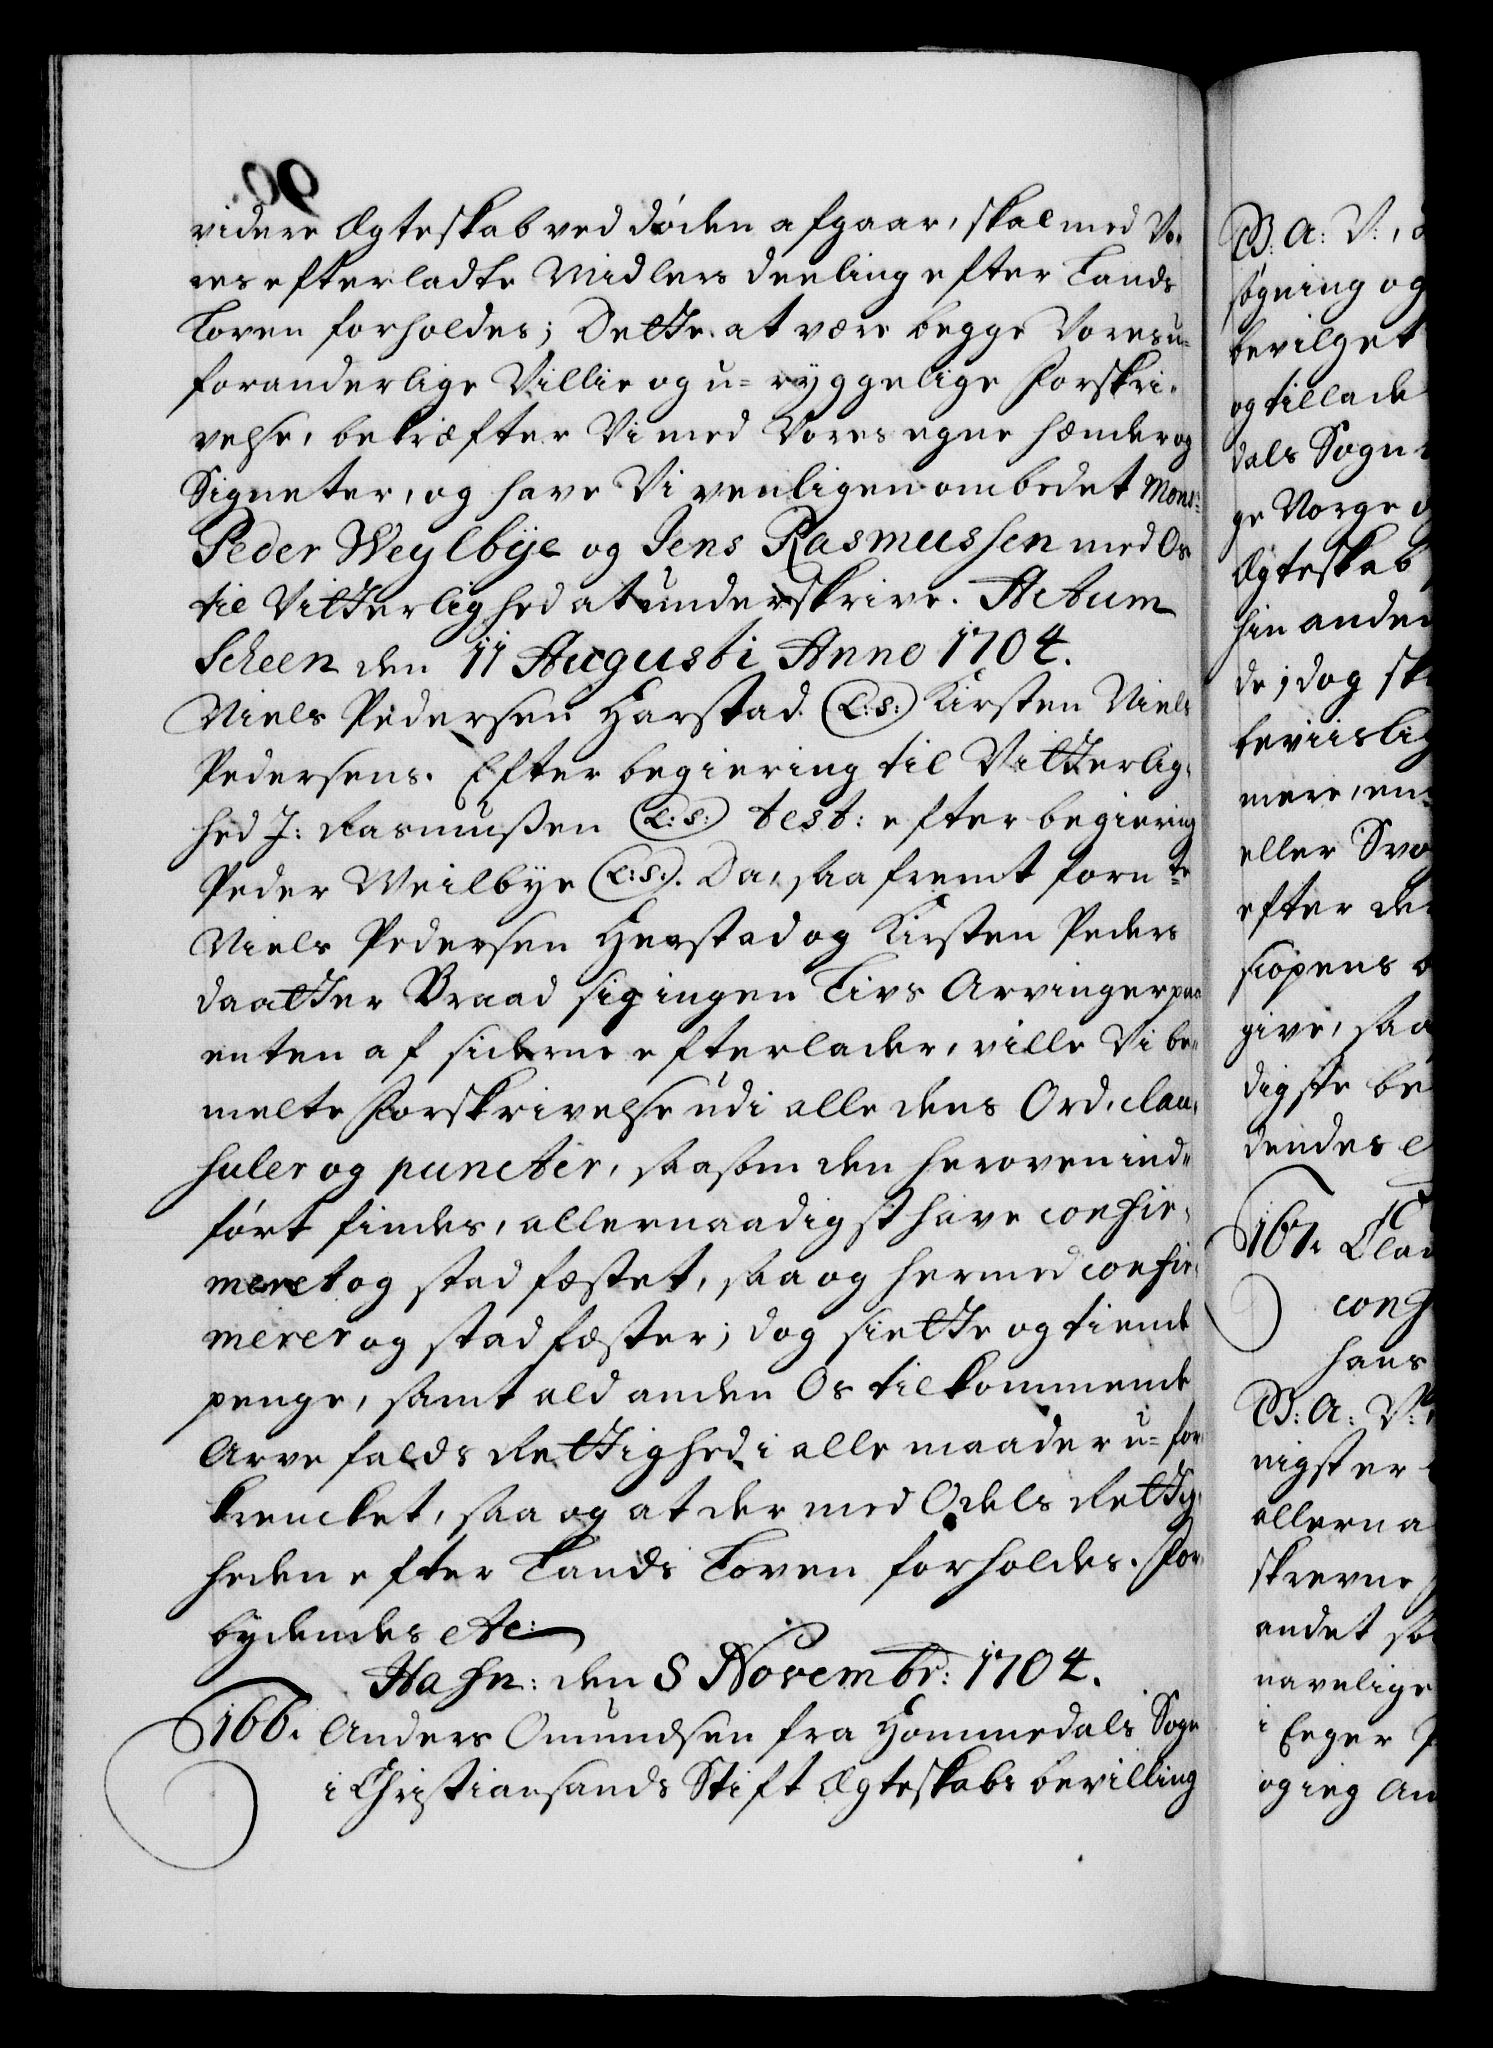 90.
videre Ægteskab ved døden afgaar, skal med Vo-
res efterladte Midlers deeling efter Lands
Loven forholdes; Dette at være begge Vores u-
foranderlige Villie og u-ryggelige Forskri-
velse, bekræfter Vi med Vores egne hænder og
Signeter, og have Vi venligen ombedet Monsr:
Peder Weylbÿe og Jens Rasmussen med Os
til Vitterlighed at underskrive. Actum
Scheen den 11 Augusti Anno 1704.
Niels Pedersen Harstad (L:S:) Kirsten Niels
Pedersens. Efter begiering til Vitterlig-
hed J: Rasmußen (L:S:) test: efter begiering
Peder Weilbye (L:S:). Da, saafremt forn:te
Niels Pedersen Herstad og Kirsten Peders
daatter Braad sig ingen Livs Arvinger paa
enten af siderne efterlader, ville Vi be-
melte Forskrivelse udi alle dens Ord, clau-
suler og puncter, saasom den herover ind-
ført findes, allernaadigst have confir-
meret og stadfæstet, saa og hermed confir-
merer og stadfæster; dog siette og tiende
penge, samt ald anden Os tilkommende
Arvefalds Rettighed i alle maader u-for-
krencket, saa og at der med Odels Rettig-
heden efter Lands Loven forholdes. For-
bydendes etc:
Hafn: den 8 Novembr: 1704.
166. Anders Omundsen fra Hommedals Sogn
i Christiansands Stift Ægteskabs bevilling
B: A: V:,
søgning og
bevilget
og tillade
dals Sogn
ge Norge
Ægteskab
hin anden
de; dog
beviislig
mere, en
eller
efter
skopens
give, saa
digste be
dendes
167.
conf
hans
B: A: V:
nigst er
allerna
skrevne
andet
navnlige
i Eeger
og ieg